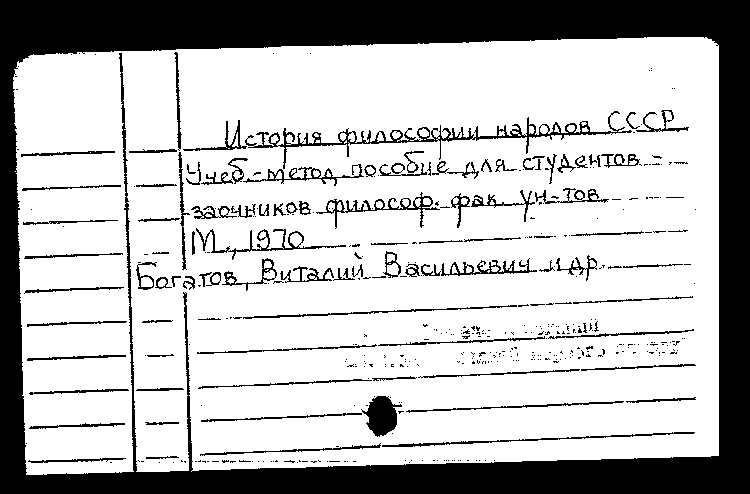 История философии народов СССР
Учеб.-метод. пособие для студентов -
заочников философ. фак. ун-тов.
М., 1970
Богатов, Виталий Васильевич и др.